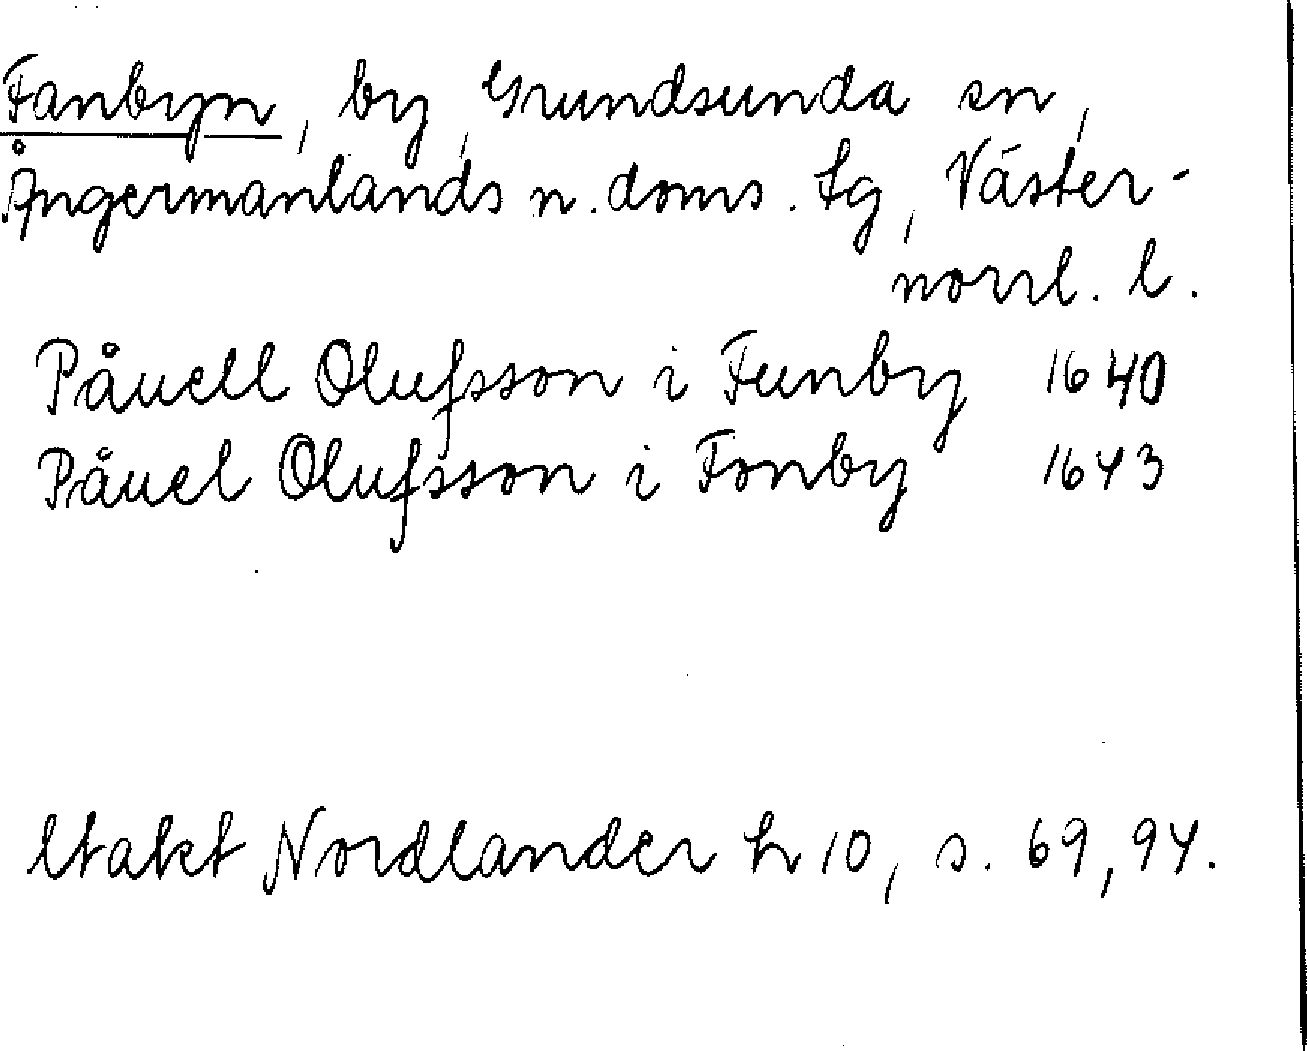 Fanbyn, by, Grundsunda sn,
Ångermanlands n. doms. tg, Väster-
norrl. l.
Påuell Olufsson i Funby 1640
Påuel Olufsson i Fonby 1643
Utakt Nordlander h 10, s. 69, 94.